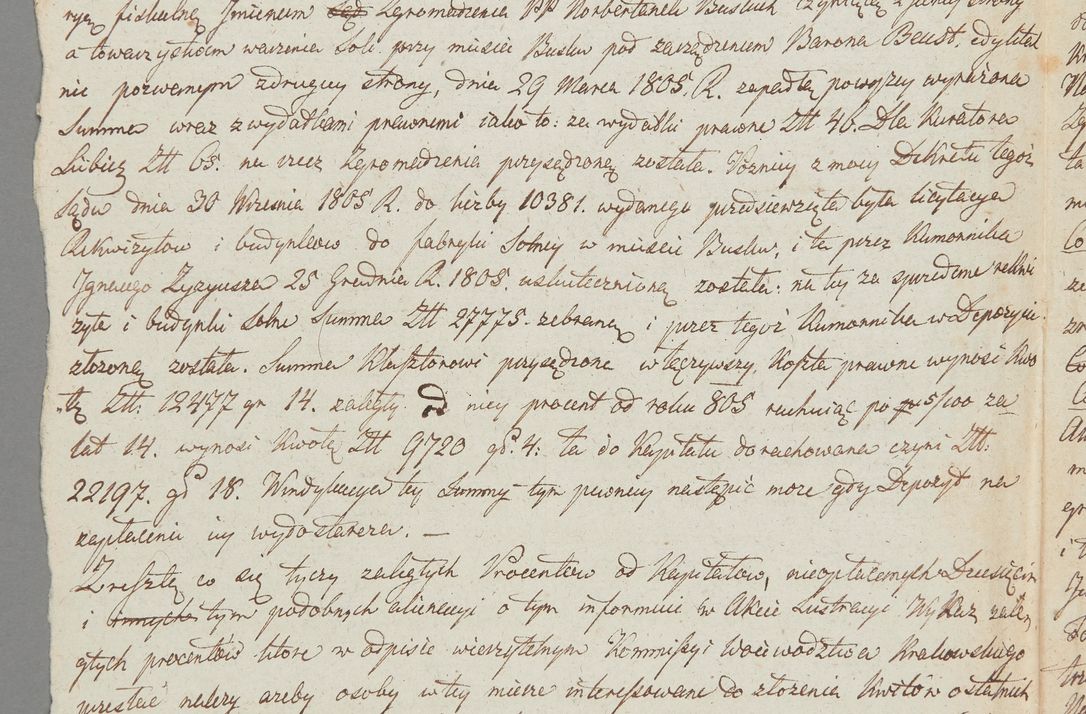 fiskalną Imieniem Zgromadzenia PP Norbertanek Buskich czyniącą z jedney strony
a towarzystwem warzenia Soli przy mieście Busku pod zarządzeniem Barona Beust, edyktal
nie pozwanym z drugiey strony, dnia 29 Marca 1805. R. zapadłą powyzey wyrażona
Summa wraz z wydatkami prawnemi iako to: za wydatki prawne Ztt 46. Dla Kuratora
Lubicz Ztt 65. na rzecz Zgromadzenia przysądzoną została. Późniey z mocy Dekretu tegoż
Sądu dnia 30 Września 1805 R. do liczby 10381. wydanego przedsięwzięta była licytacya
Rekwizytow i budynkow do fabryki Solney w mieście Busku, i ta przez Komornika
Ignacego Zyzyusza 25 Grudnia R. 1805. uskutecznioną została: na tey za sprzedane rekwi
zyta i budynki solne Summa Ztt 27775. zebraną i przez tegoż Komornika w Depozycie
złożoną została. Summa Klasztorowi przysądzona w tęczywszy Koszta prawne wynosi Kwo
tę Ztt: 12477 gr 14. zaległy od niey procent od roku 805 rachuiąc po 5/100 za
lat 14. wynosi Kwotę Ztt 9720 gr. 4: ta do Kapitału dorachowana czyni Ztt:
22197. gr 18. Windykacya tey Summy tym pewniey nastąpić może gdy Depozyt na
zapłacenie iey wydostarcza. —
Zresztą co się tyczy zaległych Procentow od Kapitałow, nieopłaconych Dziesięcin
i tym podobnych alienacyi o tym informuie w Akcie Lustracyi Wykaz zale
głych procentów które w odpisie wierzytelnym Kommissyi Woiewodztwa Krakowskiego
przesłać należy azeby osoby w tey mierze interessowane do złożenia Kwitów ostatnich